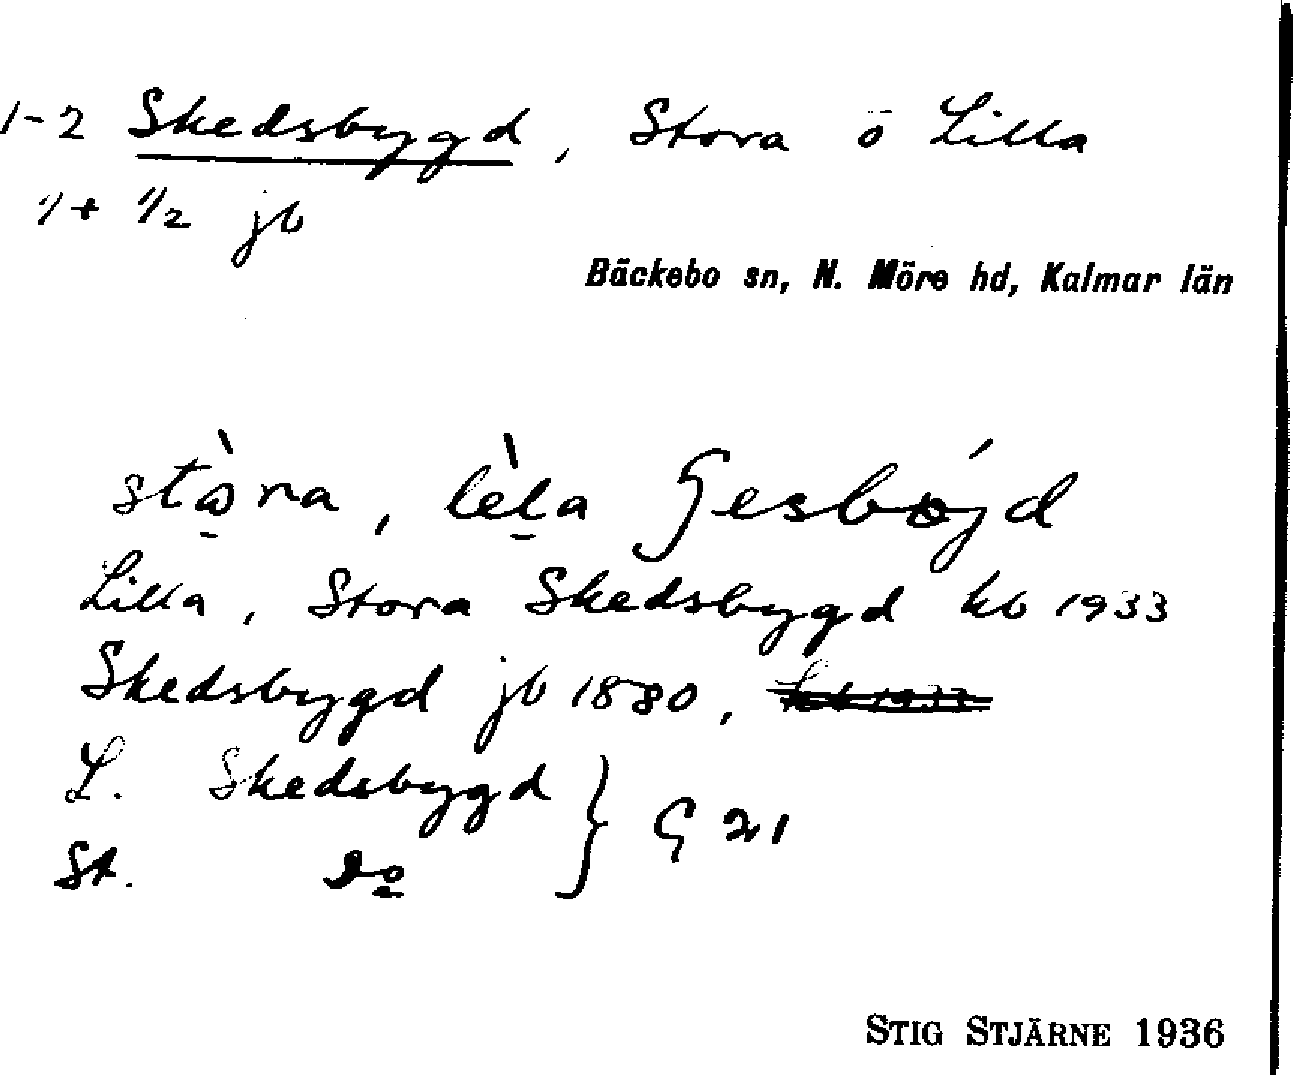 1-2 Skedsbygd, Stora o Lilla
1 + 1/2 jb
Bäckebo sn, N. Möre hd, Kalmar län
stòra, lèla ʃesbøjd
Lilla, Stora Skedsbygd kb 1933
Skedsbygd jb 1880, kb 1933
L. Skedsbygd } G 21
St. Do
STIG STJÄRNE 1936